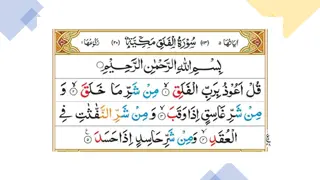 اٰیَاتُهَا ٥ (١١٣) سُوْرَةُ الْفَلَقِ مَكِّیَّةٌ (٢٠) رُكُوْعُهَا ١
بِسْمِ اللّٰهِ الرَّحْمٰنِ الرَّحِیْمِ
قُلْ اَعُوْذُ بِرَبِّ الْفَلَقِ مِنْ شَرِّ مَا خَلَقَ وَ
مِنْ شَرِّ غَاسِقٍ اِذَا وَقَبَ وَ مِنْ شَرِّ النَّفّٰثٰتِ فِی
الْعُقَدِ وَ مِنْ شَرِّ حَاسِدٍ اِذَا حَسَدَ